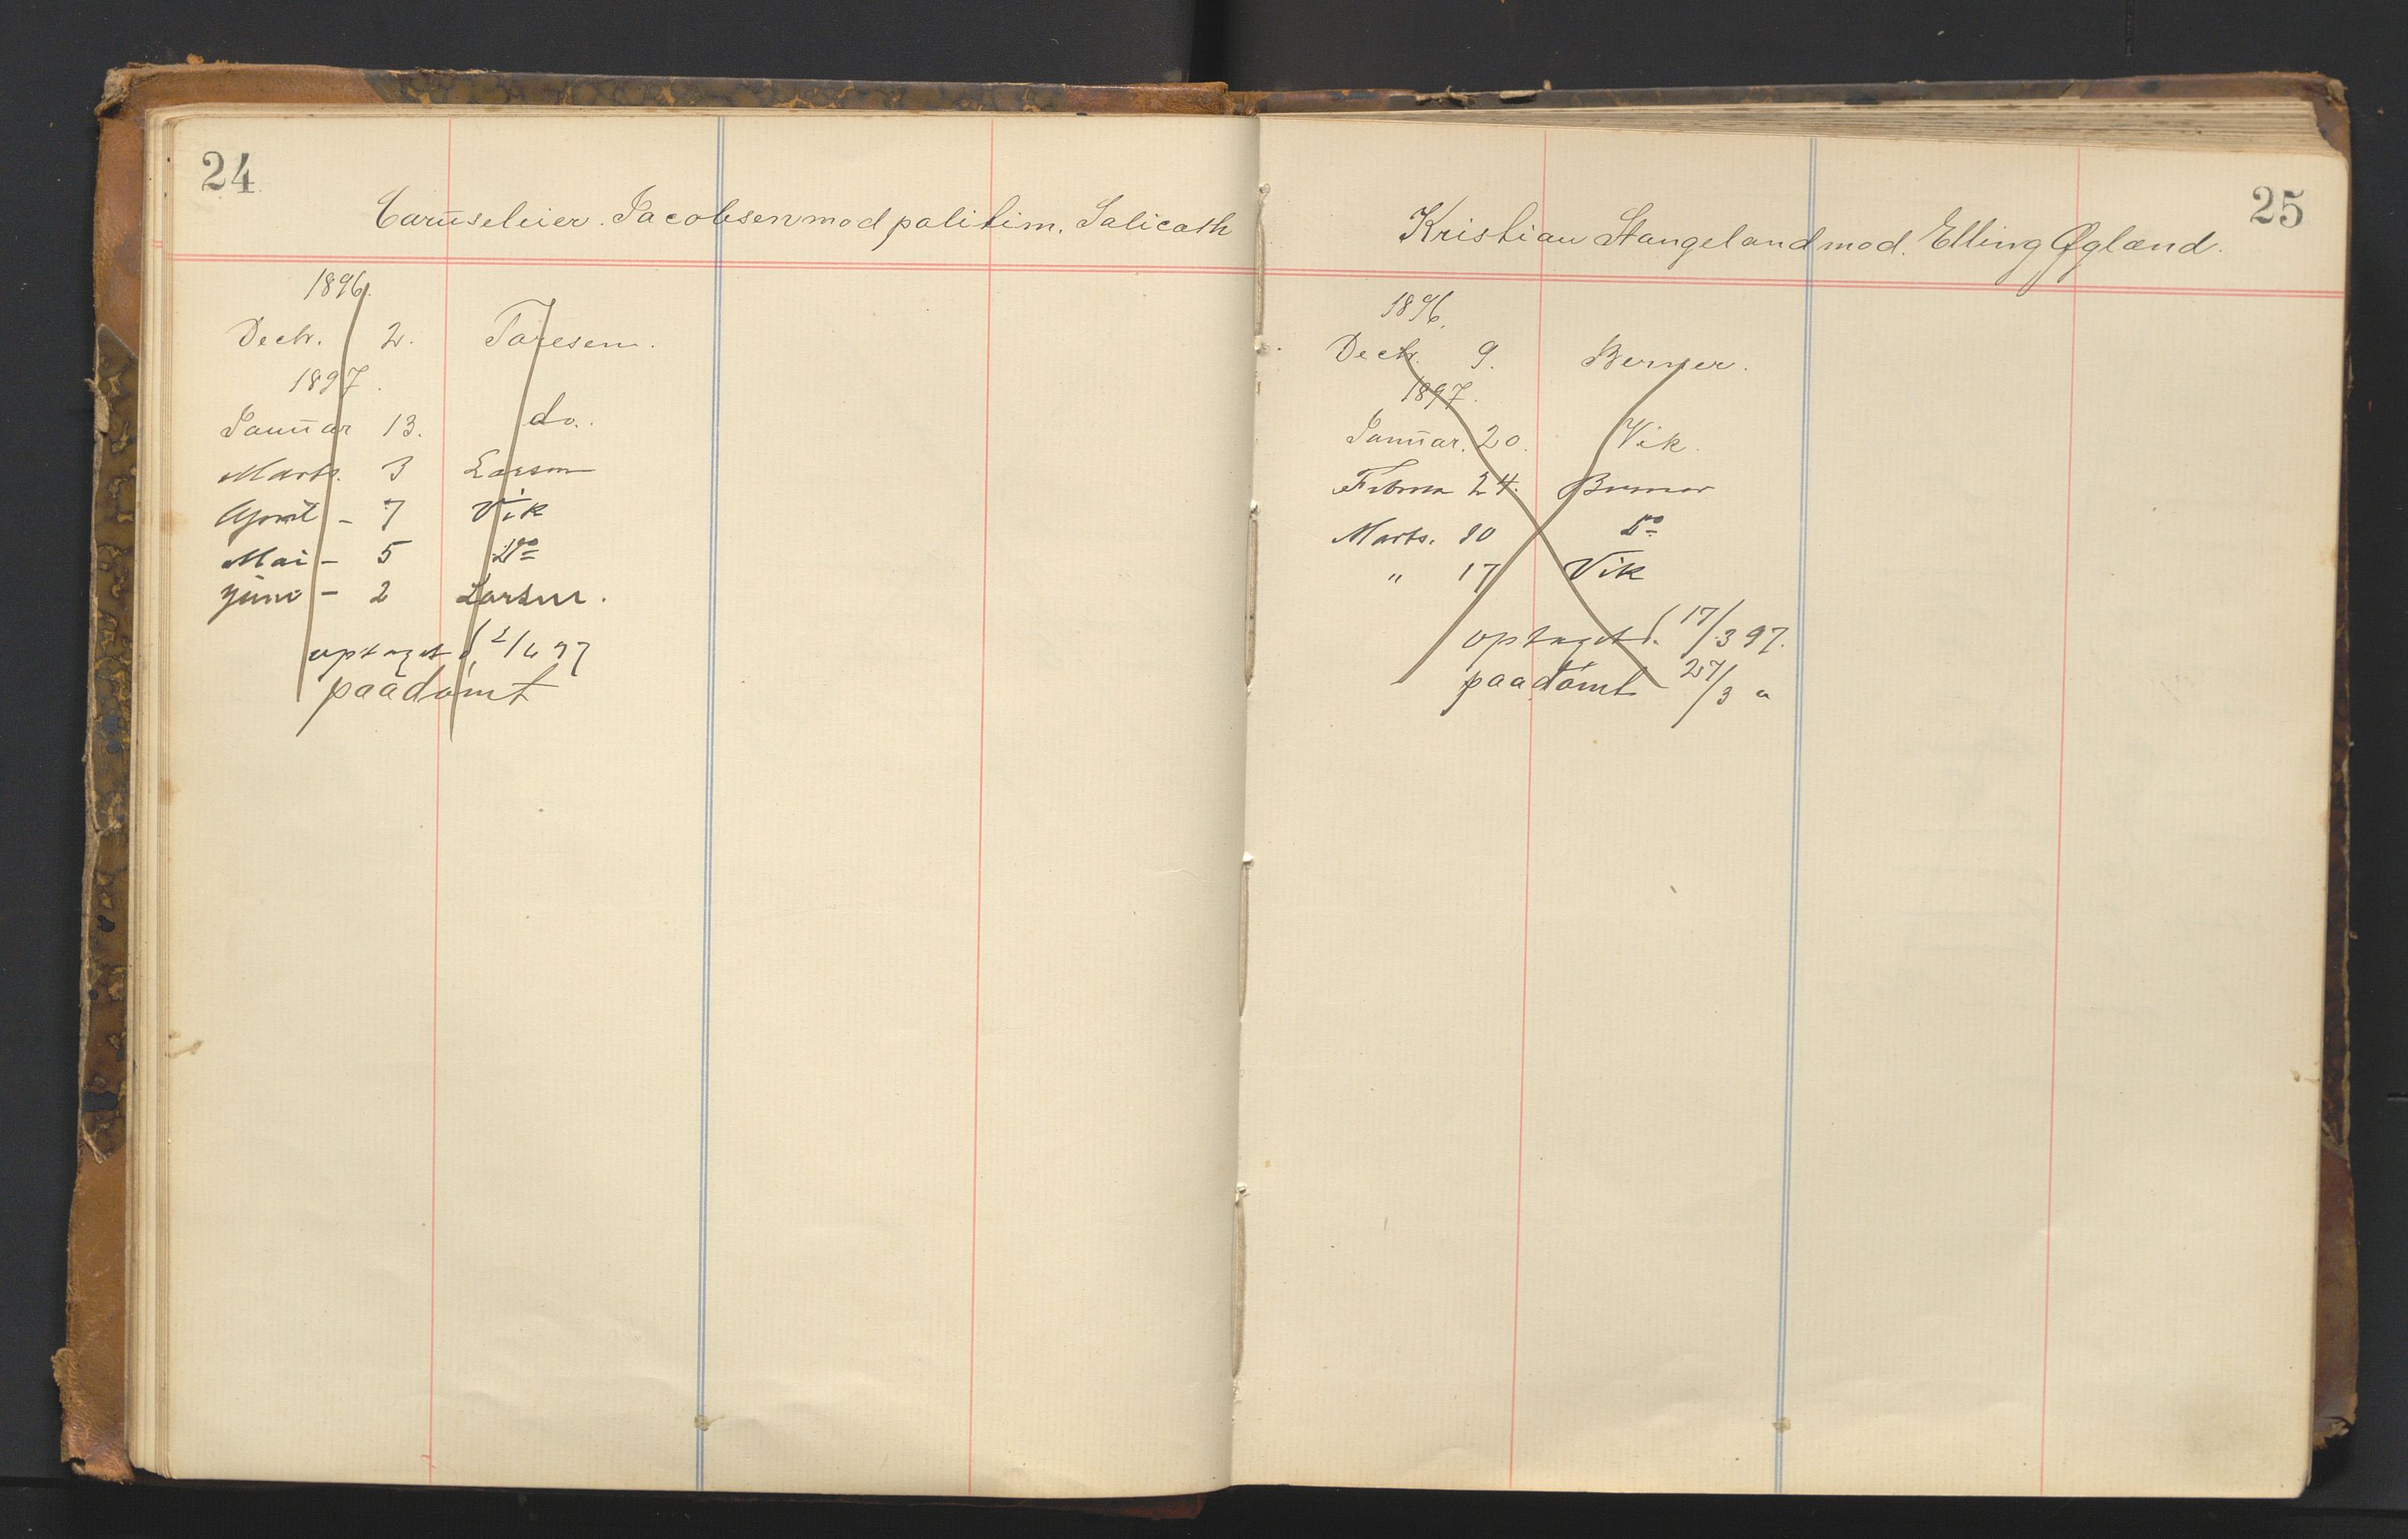 24
Caruseleier. Jacobsen mod politim. Salicath
1896.
Decbr. 2. Taresen.
1897.
Januar 13. do.
Marts. 3 Larsen
April - 7 Vik
Mai - 5 Do
Juni - 2 Larsen.
optaget d. 2/6 97
paadömt
25
Kristian Stangeland mod. Elling Øglænd.
1896.
Decbr. 9. Berner.
1897.
Januar. 20. Vik.
Februar 24. Berner
Marts. 10 Do
" 17 Vik
optaget d. 17/3 97.
paadömt 27/3 "